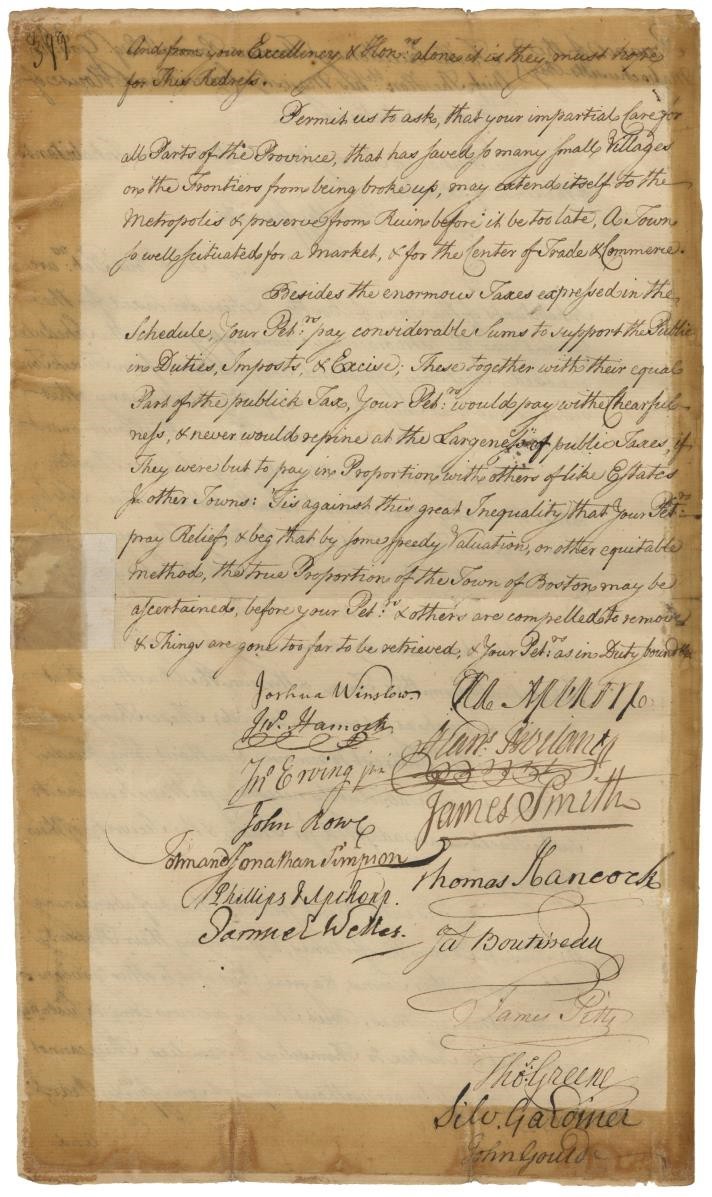 399
And from your Excellency & Hon.rs alone it is they must hope
for this Redress.
Permit us to ask, that your impartial Care for
all Parts of the Province, that has saved so many small Villages
on the Frontiers from being broke up, may extend itself to the
Metropolis & preserve from Ruin before it be too late, A Town
so well scituated for a Market, & for the Center of Trade & Commerce.
Besides the enormous Taxes expressed in the
Schedule, Your Pet.rs pay considerable Sums to support the Public
in Duties, Imposts, & Excise; These together with their equal
Part of the publick Tax, Your Pet.rs would pay with Chearful-
ness, & never would repine at the Largeness of public Taxes, if
They were but to pay in Proportion with others of like Estates
In other Towns: 'Tis against this great Inequality that Your Pet.rs
pray Relief, & beg that by some speedy Valuation, or other equitable
method, the true Proportion of the Town of Boston may be
ascertained, before your Pet.rs & others are compelled to remove
& Things are gone too far to be retrieved, & Your Pet.rs as in Duty bound &c
Joshua Winslow
Cha Apthorp
Jno. Hancock
Jno Erving jun
James Smith
John Rowe
Jonathan Simpson
Thomas Hancock
Samuel Welles.
Ja.s Boutineau
James Pitts
Tho.s Greene
Silv. Gardiner
John Gould